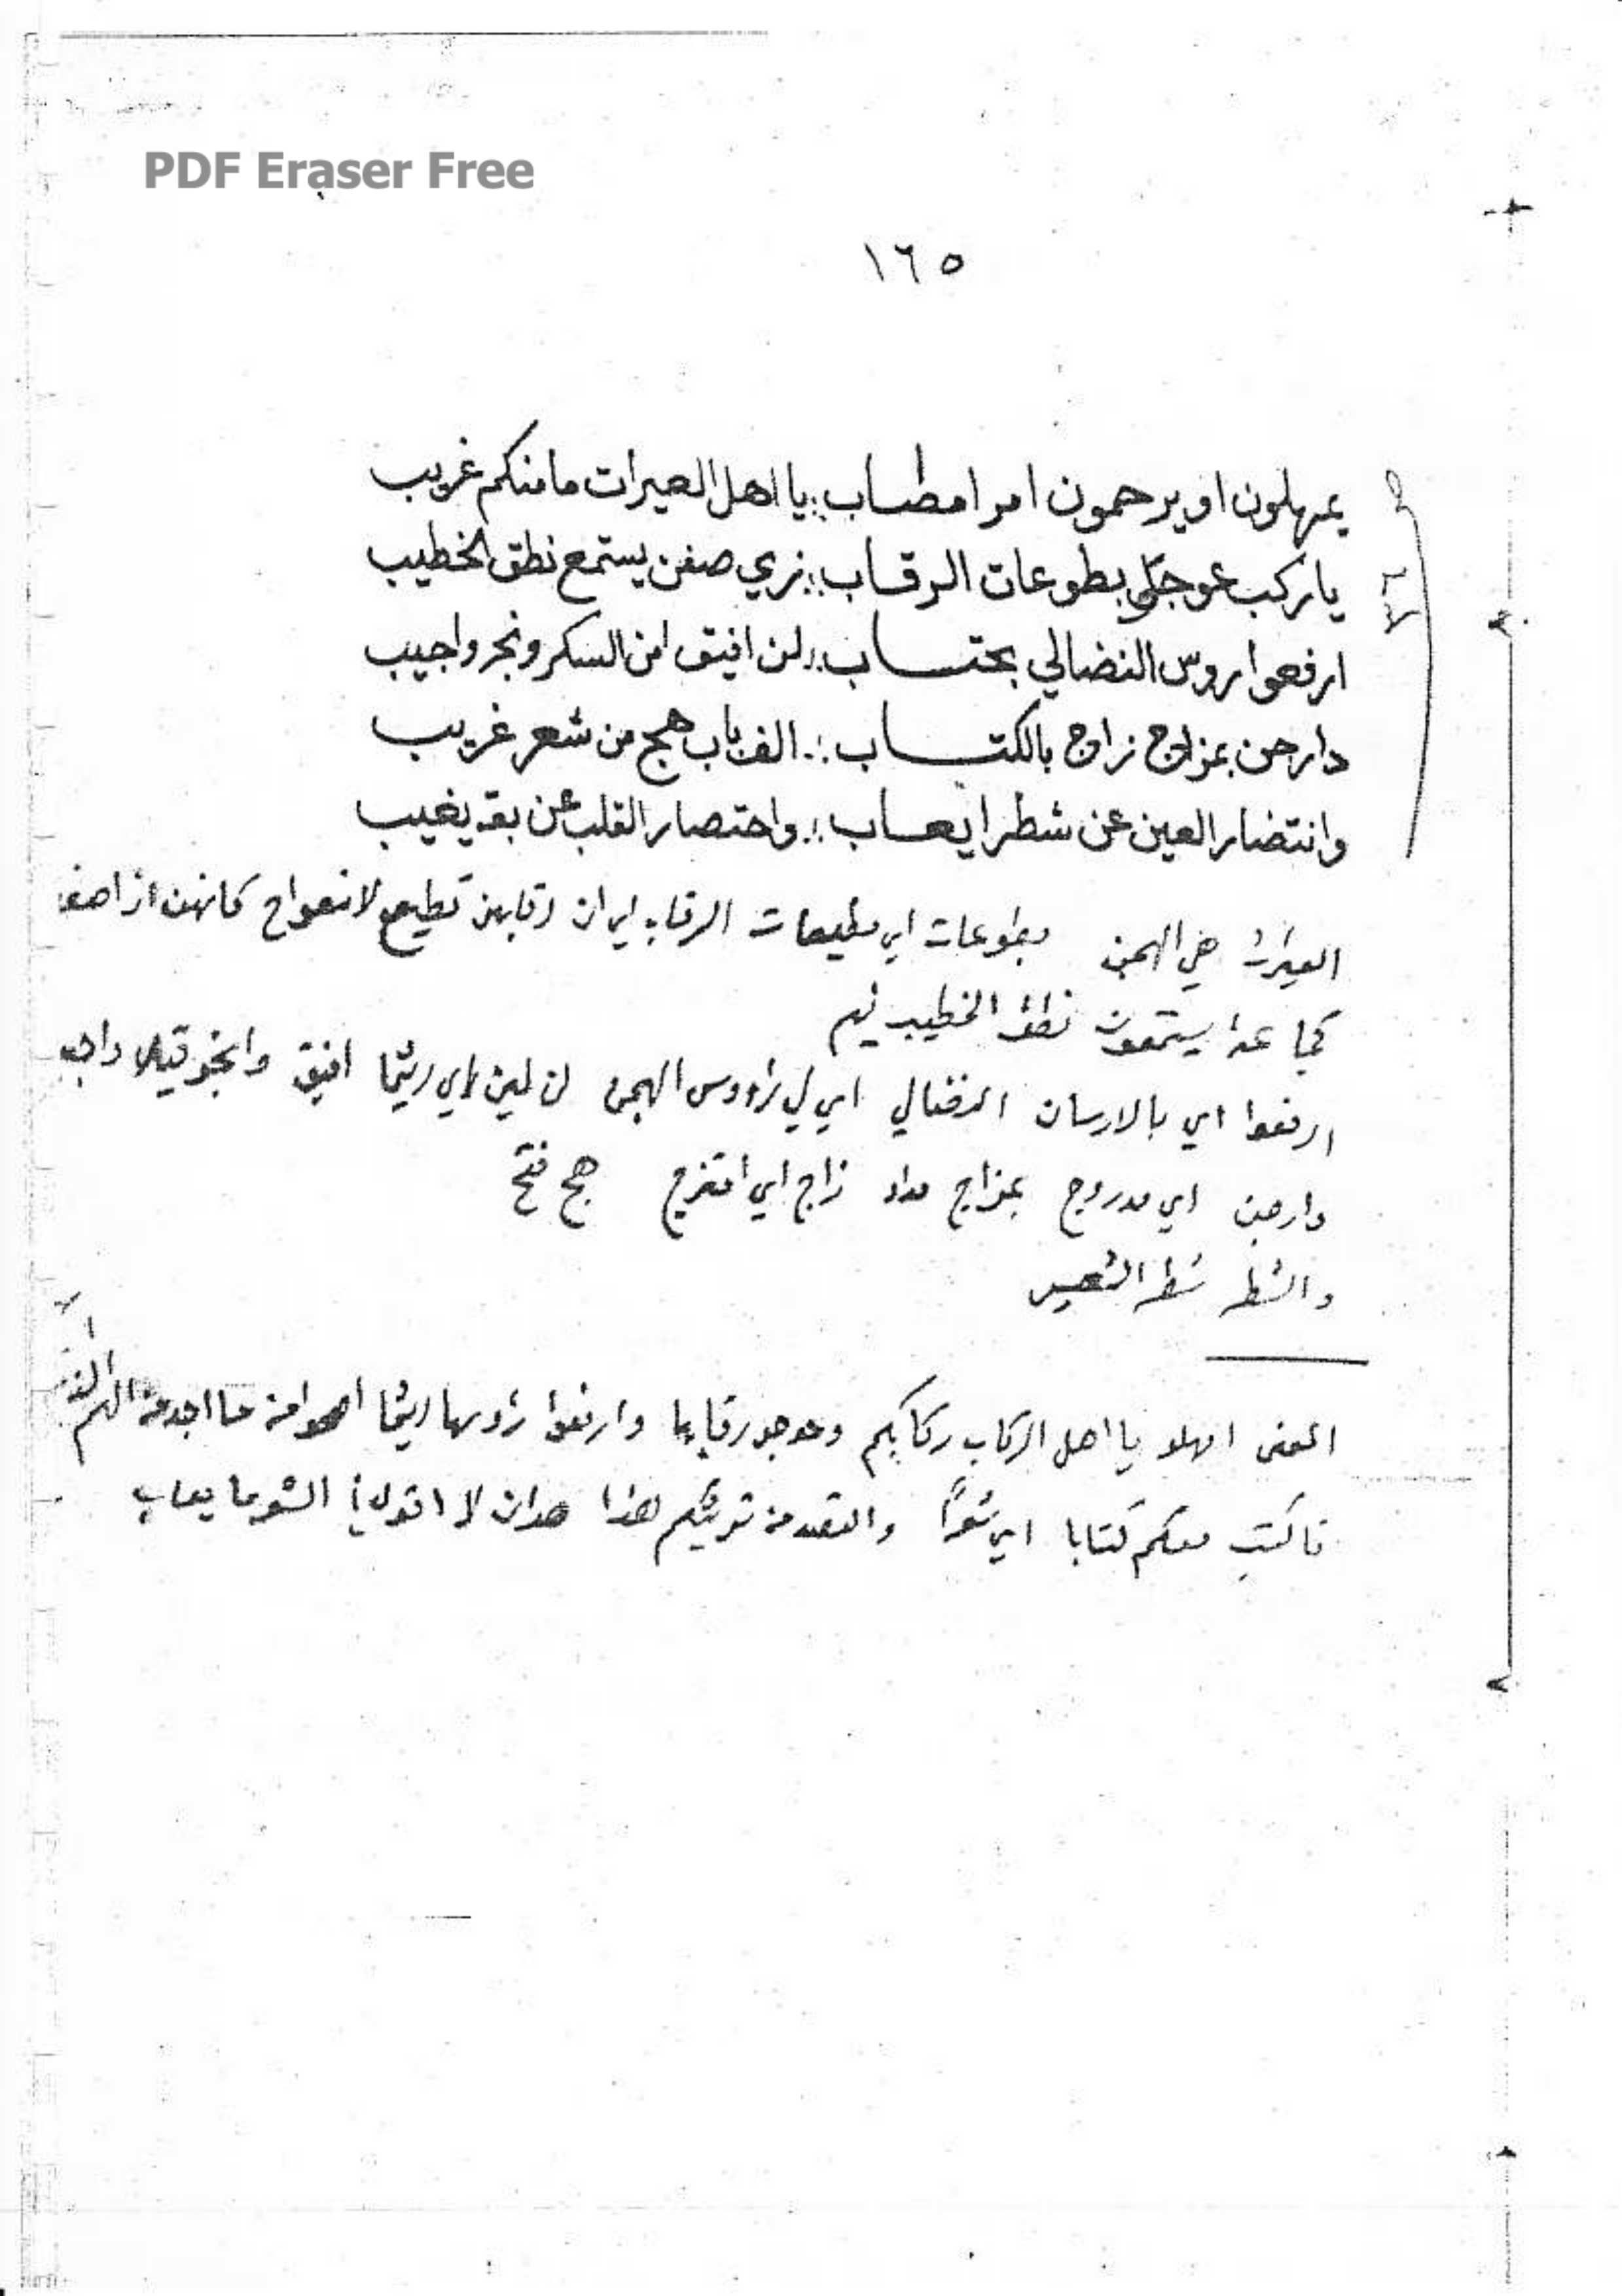 PDF Eraser Free
١٦٥
يمهلون او يرحمون امر امصاب :: يا اهل العيرات ما منكم غريب
يا ركب عوجلّي بطوعات الرقاب :: زي صفن يستمع نطق الخطيب
ارفعوا روس النضالي بحتساب :: لن افيق امن السكر ونجر واجيب
دارحن بمزاج زاج بالكتاب :: الف باب هج من شعر غريب
وانتضار العين عن شطر ايعاب :: واحتصار القلب عن بقه يغيب
العيرات هي الهجن بطوعات اي مطيعات الرقاب اي ان رقابهن تطيع لانعواج كانهن
كجماعة يستمعون نطق الخطيب
ارفعوا اي بالارسان النضالي اي لي رؤوس الهجن لن لمين اي ريثما افيق
دارحن اي مدروج بمزاج مداد زاج اي امتزج هج فتح
والشطر شطر الشعير
المعنى امهلو يا اهل الركاب ركابكم وعوجو رقابها وارفعوا رؤسها ريثما اصحوا من ما اجده من الهم
فاكتب معكم كتابا اي شعراً والقصد من تريثكم هذا هو ان لا اقول في الشعر ما يعاب